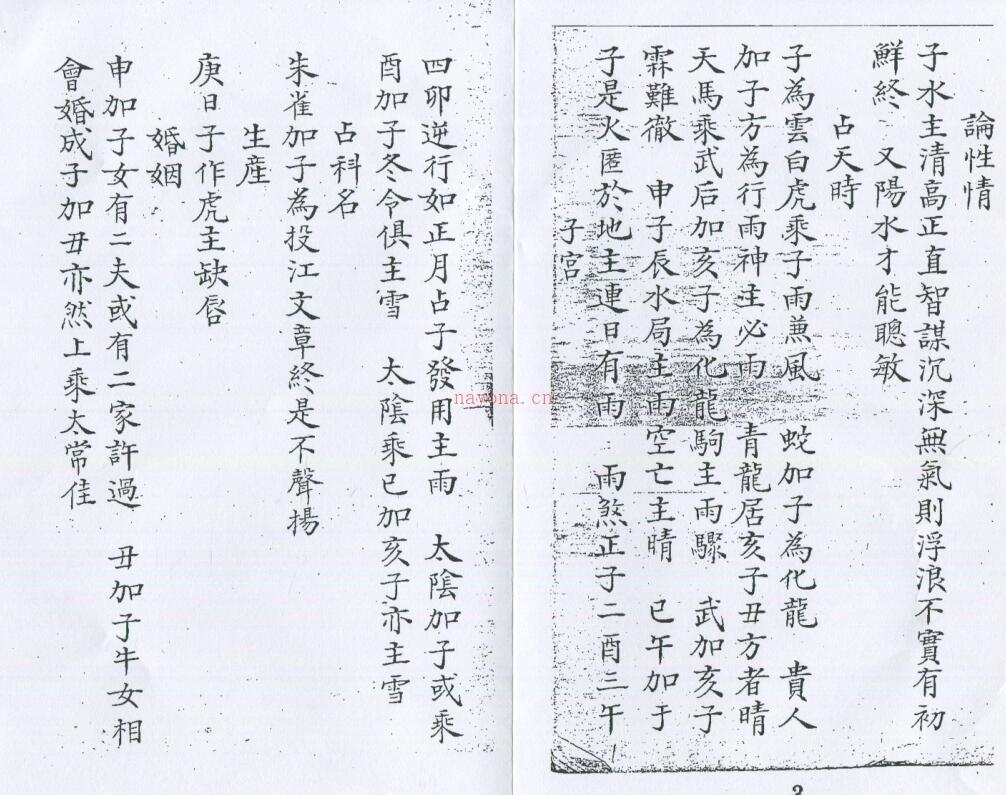 論性情
子水主清高正直智謀沉深無氣則浮浪不實有初
鮮終　又陽水才能聰敏
占天時
子為雲白虎乘子雨兼風　蛟加子為化龍　貴人
加子方為行雨神主必雨　青龍居亥子丑方者晴
天馬乘武后加亥子為化龍駒主雨驟　武加亥子
霖難徹　申子辰水局主雨空亡主晴　巳午加于
子是火匿於地主連日有雨　雨煞正子二酉三午
子宮
四卯逆行如正月占子發用主雨　太陰加子或乘
酉加子冬令俱主雪　太陰乘已加亥子亦主雪
占科名
朱雀加子為投江文章終是不聲揚
生産
庚日子作虎主缺唇
婚姻
申加子女有二夫或有二家許過　丑加子牛女相
會婚成子加丑亦然上乘太常佳
nayona.cn
3